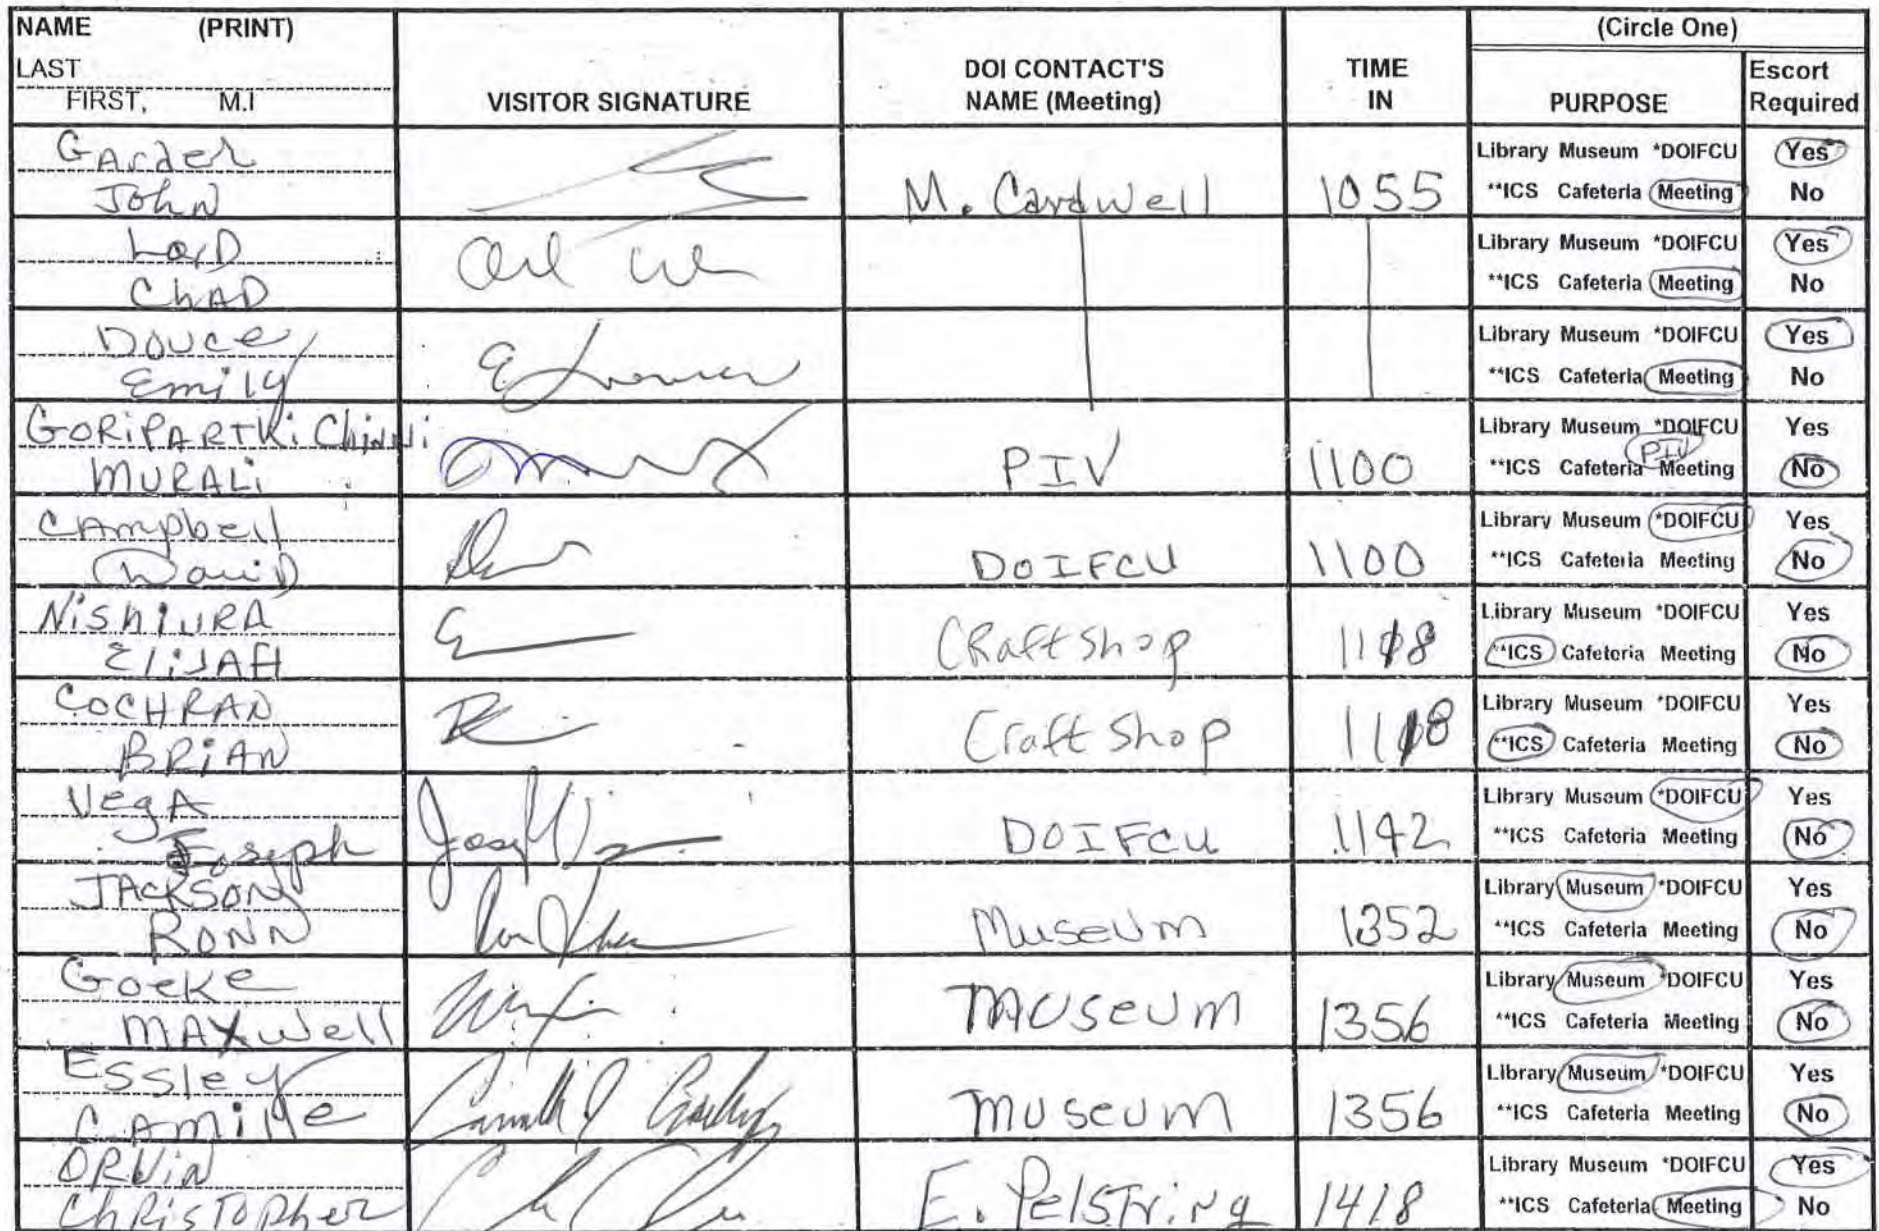 NAME (PRINT)
LAST
FIRST, M.I
VISITOR SIGNATURE
DOI CONTACT'S
NAME (Meeting)
TIME
IN
(Circle One)
PURPOSE
Escort
Required
Garder
John
M. Cardwell
1055
Library Museum *DOIFCU Yes
**ICS Cafeteria Meeting No
LorD
ChAD
Library Museum *DOIFCU Yes
**ICS Cafeteria Meeting No
Douce
Emily
Library Museum *DOIFCU Yes
**ICS Cafeteria Meeting No
GORiPARTHi Chinni
MURALi
PIV
1100
Library Museum *DOIFCU Yes
PIV
**ICS Cafeteria Meeting No
CAmpbell
DaviD
DOIFCU
1100
Library Museum *DOIFCU Yes
**ICS Cafeteria Meeting No
NishiURA
EliJAH
CRaft Shop
1118
Library Museum *DOIFCU Yes
**ICS Cafeteria Meeting No
COCHRAN
BRiAN
Craft Shop
1118
Library Museum *DOIFCU Yes
**ICS Cafeteria Meeting No
VegA
Joseph
DOIFCU
1142
Library Museum *DOIFCU Yes
**ICS Cafeteria Meeting No
JACKSON
RONN
Museum
1352
Library Museum *DOIFCU Yes
**ICS Cafeteria Meeting No
Goeke
MAXwell
Museum
1356
Library Museum *DOIFCU Yes
**ICS Cafeteria Meeting No
Essley
CAmille
Museum
1356
Library Museum *DOIFCU Yes
**ICS Cafeteria Meeting No
ORViN
ChRisTopher
E. Pelstring
1418
Library Museum *DOIFCU Yes
**ICS Cafeteria Meeting No